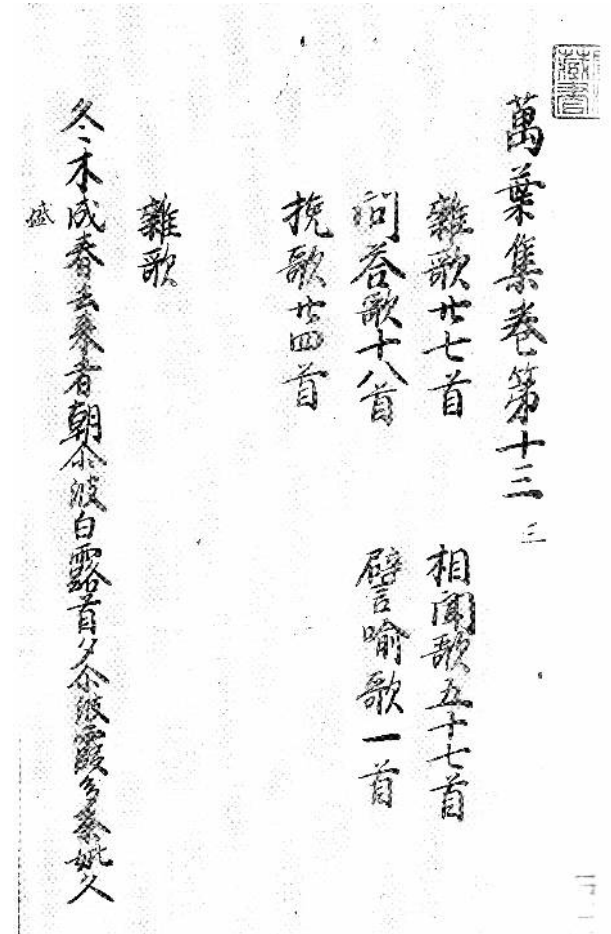 萬葉集卷第十三 三
雜歌廿七首 相聞歌五十七首
問荅歌十八首 譬喻歌一首
挽歌廿四首
雜歌
冬木成春去来者朝尒波白露首夕尒波霞多奈妣久
盛
藏書